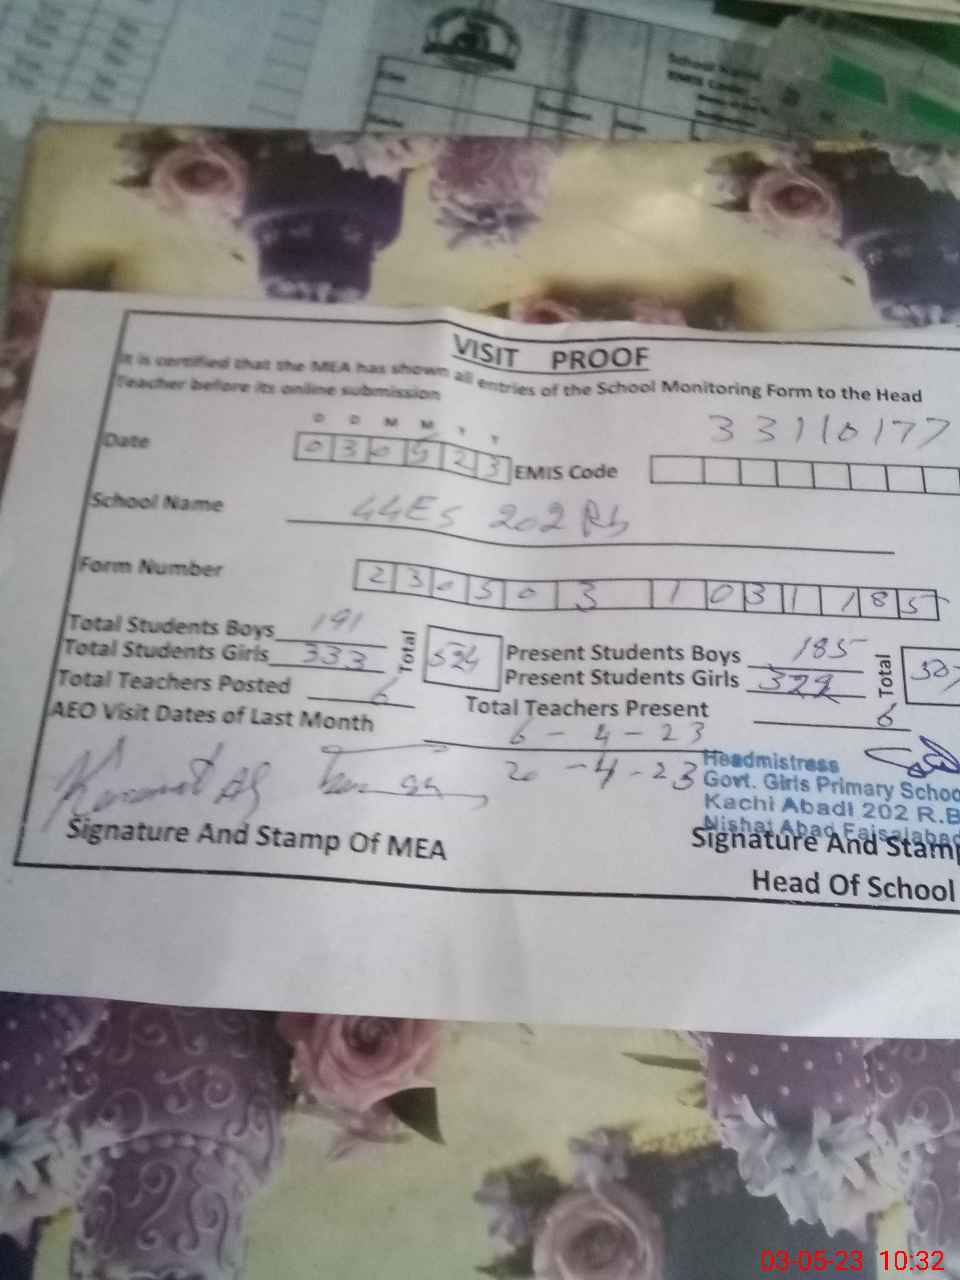 VISIT PROOF
It is certified that the MEA has shown all entries of the School Monitoring Form to the Head
Teacher before its online submission
D D M M Y Y
Date 03 05 23 EMIS Code 33110177
School Name 44Es 202 Rb
Form Number 2305031031185
Total Students Boys 191 Present Students Boys 185
Total Students Girls 333 Total 524 Present Students Girls 322 Total 507
Total Teachers Posted 6 Total Teachers Present 6
AEO Visit Dates of Last Month 6-4-23
20-4-23
Headmistress
Govt. Girls Primary Schoo
Kachi Abadi 202 R.B
Nishat Abad Faisalabad
Signature And Stamp Of MEA Signature And Stamp
Head Of School
03-05-23 10:32